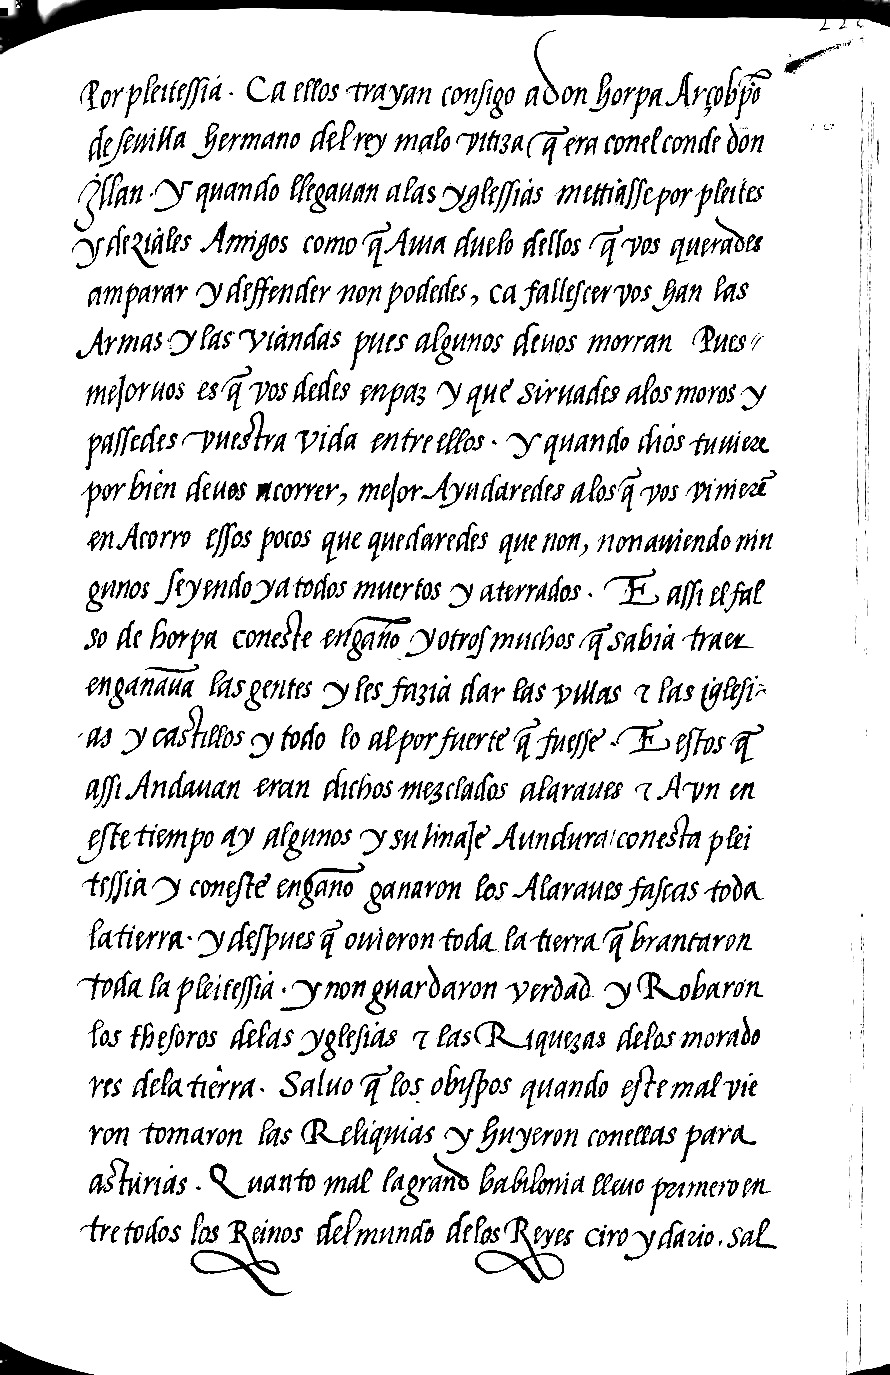 Por pleitessia. Ca ellos trayan consigo a don horpa Arçobp̃o
de seuilla hermano del rey malo vitiza q̃ era con el conde don
yllan. y quando llegauan a las yglessias mettiasse por pleites
y deziales Amigos como q̃ Auia duelo dellos q̃ vos querades
amparar y deffender non podedes, ca fallescer vos han las
Armas y las viandas pues algunos deuos morran Pues
mejor uos es q̃ vos dedes en paz y que siruades a los moros y
passedes vuestra vida entre ellos. y quando dios tuuiere
por bien deuos acorrer, mejor Ayudaredes a los q̃ vos viniere͂
en Acorro essos pocos que quedaredes que non, non auiendo nin
gunos seyendo ya todos muertos y aterrados. E assi el fal
so de horpa con este engaño y otros muchos q̃ sabia traer
enganaua las gentes y les fazia dar las villas τ las iglesi-
as y castillos y todo lo al por fuerte q̃ fuesse. E estos q̃
assi Andauan eran dichos mezclados alaraues τ Avn en
este tiempo ay algunos y su linaje Aun dura con esta plei
tessia y con este engano ganaron los Alaraues fascas toda
la tierra. y despues q̃ ouieron toda la tierra q̃brantaron
toda la pleitessia. y non guardaron verdad y Robaron
los thesoros de las yglesias τ las Riquezas de los morado
res de la tierra. Saluo q̃ los obispos quando este mal vie
ron tomaron las Reliquias y huyeron con ellas para
asturias. Quanto mal la grand babilonia lleuo primero en
tre todos los Reinos del mundo de los Reyes ciro y dario. sal